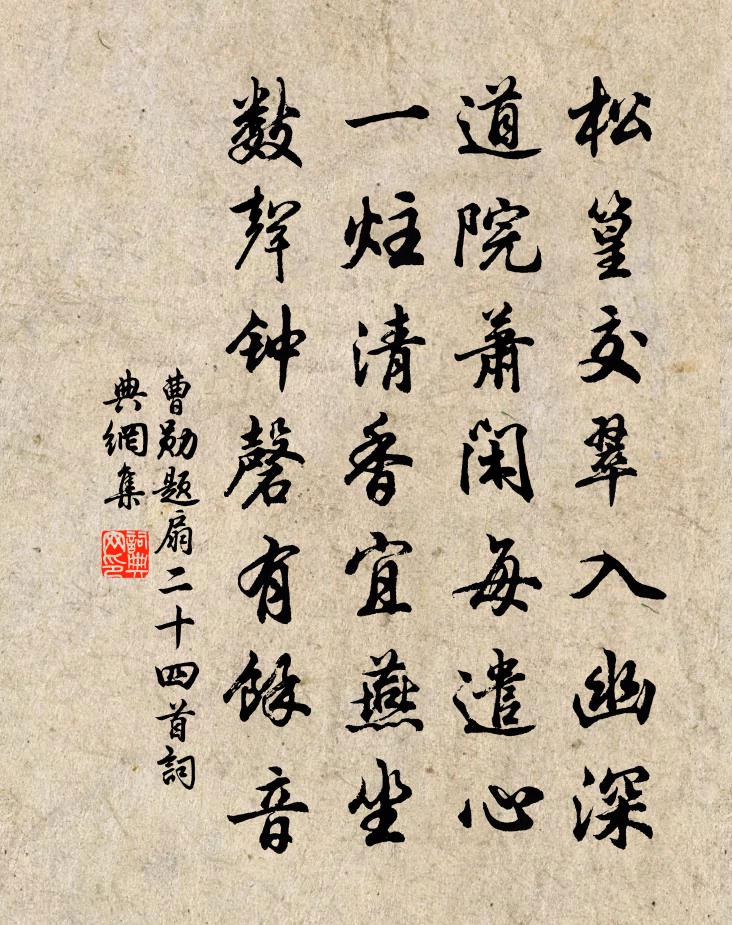 松篁交翠入幽深
道院萧闲每遣心
一炷清香宜燕坐
数声钟磬有馀音
曹勋题扇二十四首詞
典網集
詞典
网印